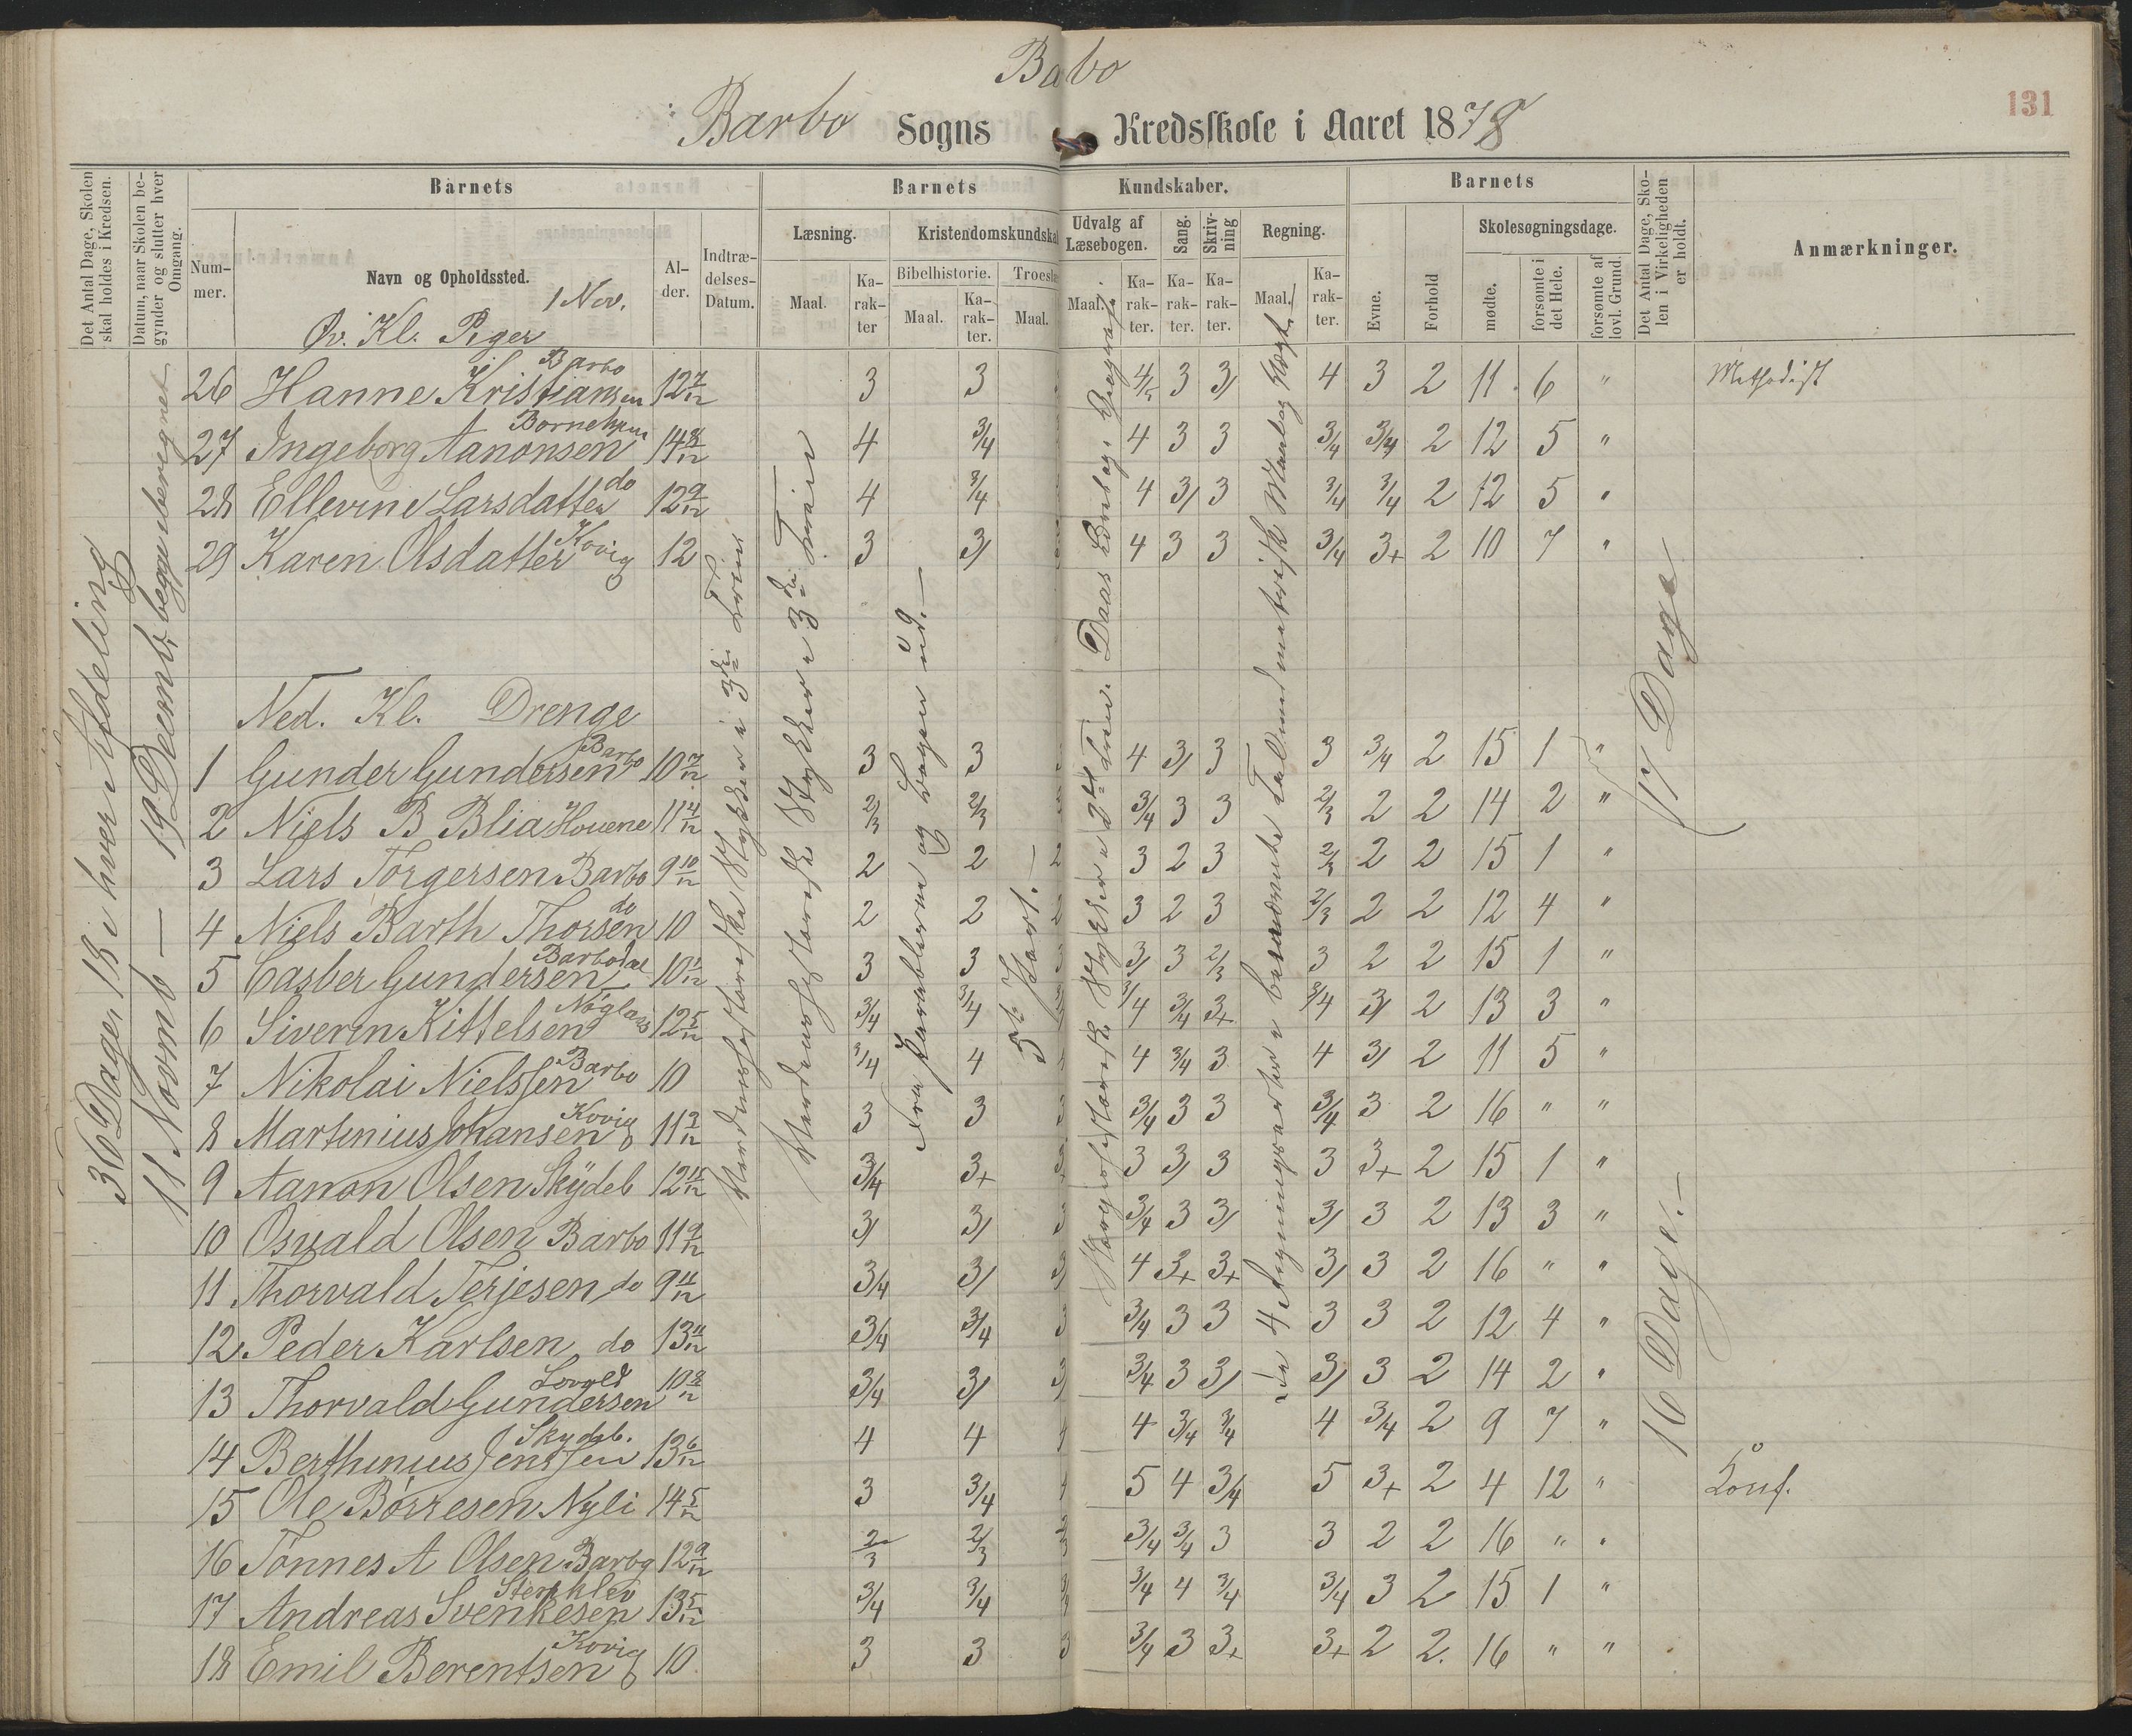 Babo
131
Barbo Sogns Kredsskole i Aaret 1878
Det Antal Dage, Skolen skal holdes i Kredsen.
Datum, naar Skolen begynder og slutter hver Omgang.
Barnets
Barnets
Kundskaber.
Barnets
Det Antal Dage, Skolen i Virkeligheden er holdt.
Anmærkninger.
Nummer.
Navn og Opholdssted.
Alder.
Indtrædelses-Datum.
Læsning.
Kristendomskundska
Udvalg af Læsebogen.
Sang.
Skrivning
Regning.
Evne.
Forhold
Skolesøgningsdage.
Maal.
Karakter
Bibelhistorie.
Troes
Maal.
Karakter.
Maal.
Maal.
Karakter.
Karakter.
Karakter.
Maal.
Karakter.
mødte.
forsømte i det Hele.
forsømte af lovl. Grund.
1 Nov.
Øv. Kl. Piger
36 Dage, 18 i hver Afdeling
11 Novmb — 19 Decemb, begge iberegnet
Verdenshistoriske Stykker i 3die Trin
Verdenshistoriske Stykker i 3die Trin
Fra Parablerne og Bogen ud.—
5te Part.
Daas
de 4 Regningsarter i
17 Dage
16 Dage.—
26 Hanne Kristiansen Barbo 12 7/12 3 3 4/5 3 3/ 4 3 2 11 6 " Methodist
27 Ingeborg Aanonsen 14 8/12 4 3/4 4 3 3 3/4 3/4 2 12 5 "
28 Ellevine Larsdatter do 12 9/12 4 3/4 4 3/ 3 3/4 3/4 2 12 5 "
29 Karen Olsdatter Kovig 12 3 3/ 4 3 3 3/4 3+ 2 10 7 "
Ned. Kl. Drenge
1 Gunder Gundersen Barbo 10 7/12 3 3 4 3/ 3 3 3/4 2 15 1 "
2 Niels B Blia Houene 11 4/12 2/3 2/3 3/4 3 3 2/3 2 2 14 2 "
3 Lars Torgersen Barbo 9 10/12 2 2 2 3 2 3 2/3 2 2 15 1 "
4 Niels Barth Thorsen do 10 2 2 2 3 2 3 2/3 2 2 12 4 "
5 Casber Gundersen Barbodal 3 3 3 3/ 3 2/3 3 2 2 15 1 "
6 Siveren Kittelsen 12 5/12 3/4 3/4 3/4 3/4 3+ 3/4 3/ 2 13 3 "
7 Nikolai Nielssen Barbo 10 3/4 4 4 3/4 3 4 3/ 2 11 5 "
8 Martinius Johansen Kovig 3 3 3 3/4 3 3 3/4 3 2 16 " "
9 Aanon Olsen Skÿdeb 3/4 3+ 3 3/ 3 3 3+ 2 15 1 "
10 Osvald Olsen Barbo 11 9/12 3/ 3/ 3 3/4 3 3/ 3/ 3 2 13 3 "
11 Thorvald Terjesen do 3/4 3/ 3/ 4 3+ 3+ 3/ 3 2 16 " "
12 Peder Karlsen do 3/4 3/4 3 3/4 3 3 3 3 2 12 4 "
13 Thorvald Gundersen 10 8/12 3/4 3/ 3/ 3/4 3 3/ 3/ 3 2 14 2 "
14 Berthinius Jenssen Skydeb. 13 6/12 4 4 4 3/4 3/4 4 3/4 2 9 7 "
15 Ole Børresen Nyli 14 5/12 3 3/4 5 4 3/4 5 3+ 2 4 12 " Konf.
16 Tønnes A Olsen Barbo 12 9/12 2/3 2/3 3/4 3/4 3 3 2 2 16 " "
17 Andreas Svenkesen 13 5/12 3/4 3/4 3/4 4 3/4 3/4 3 2 15 1 "
18 Emil Berentsen Kovig 10 3 3 3 3/4 3 3+ 3+ 2 2. 16 " "